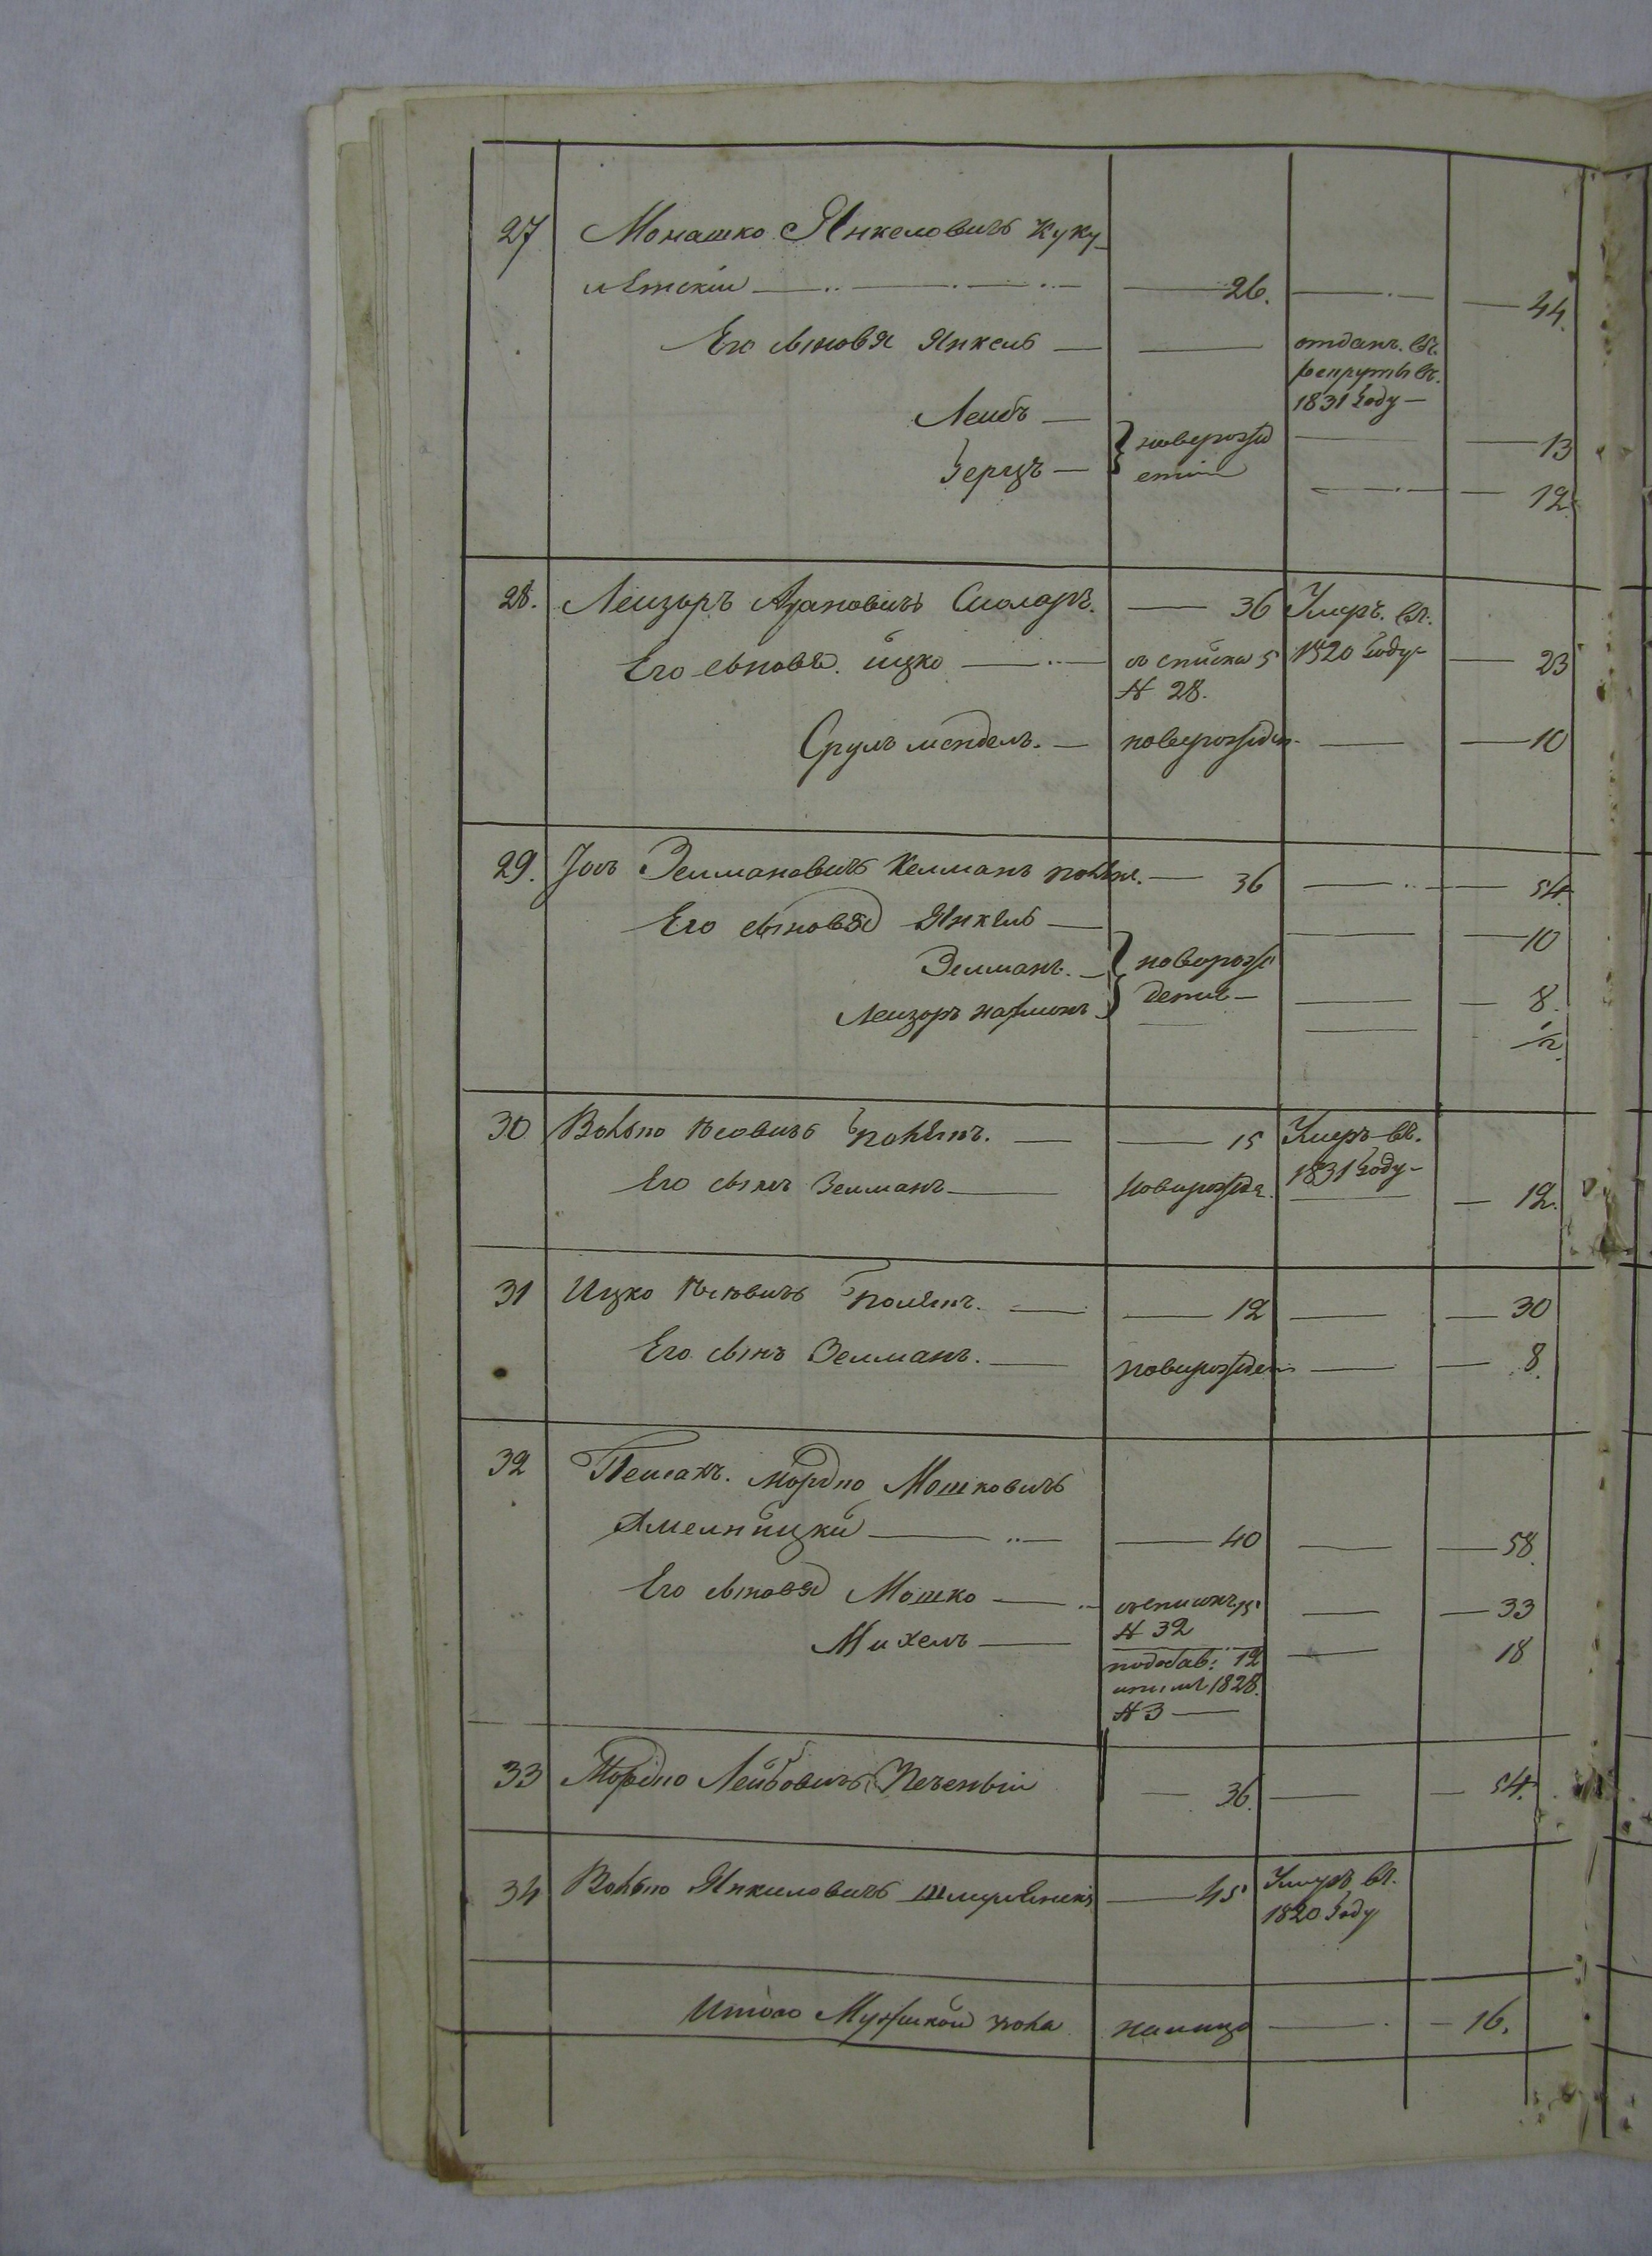 27 Монашко Янкеловичъ Куку-
лѣтскіи — 26. — 44.
Его сыновя Янкель — — отданъ въ
рекруты въ
1831 году —
Леибъ — новорожд — 13
Герцъ — енніи — 12
28. Леизоръ Ароновичъ Столяръ. — 36 Умеръ въ
Его сыновя Ицко — съ списка 5 1820 году — 23
№ 28.
Сруль мендель. — новорожден — 10
29. Зелмановичъ Келманъ — 36 — 54
Его сыновя Янкель — — 10
Зелманъ — новорож — 8.
Леизоръ денніе — 1/2
30 Волько — 15 Умеръ въ
1831 году —
Его сынъ Зелманъ — новорожде — 12.
31 Ицко — 12 — 30
Его сынъ Зелманъ. — новорожден — 8.
32 Пейсахъ Мордко Мошковичъ
Хмелницкій — 40 — 58.
Его сыновя Мошко — — 33
№ 32
Михель — 12 — 18
1828.
№ 3 —
33 Мордко Лейбовичъ Печеныи — 36. — 54.
34 Волько Янкиловичъ — 45 Умеръ въ
1820 году
Итого Мужскои пола налицо — 16.